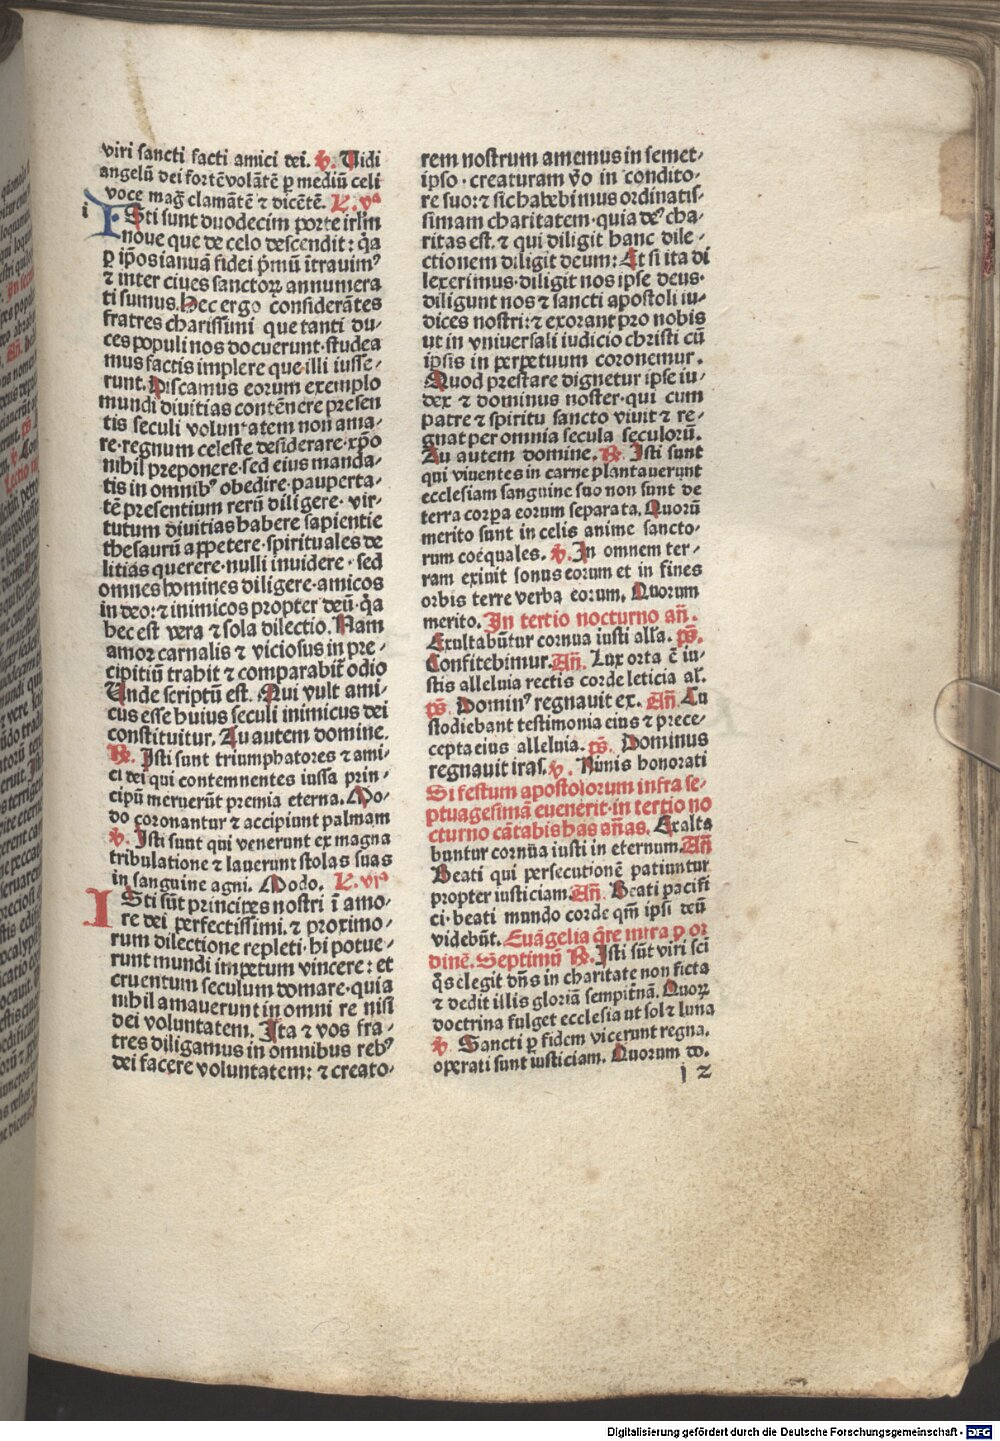 viri sancti facti amici dei. ꝟ. Uidi
angelū dei fortē volātē ꝑ mediū celi
voce mag̅ clamātē ⁊ dicētē. L. vᵃ
i
ISti sunt duodecim porte irlm̄
noue que de celo descendit: q̄a
ꝑ ip̄os ianuā fidei p̄mū ītrauim⁹
⁊ inter ciues sanctoꝝ annumera
ti sumus. Hec ergo considerātes
fratres charissimi que tanti du-
ces populi nos docuerunt·studea
mus factis implere que illi iusse-
runt. Discamus eorum exemplo
mundi diuitias contēnere presen
tis seculi voluntatem non ama-
re·regnum celeste desiderare·xp̄o
nihil preponere·sed eius manda-
tis in omnib⁹ obedire·pauperta-
tē presentium rerū diligere·vir-
tutum diuitias habere sapientie
thesaurū appetere·spirituales de
litias querere·nulli inuidere·sed
omnes homines diligere·amicos
in deo:⁊ inimicos propter deū·q̄a
hec est vera ⁊ sola dilectio. Nam
amor carnalis ⁊ viciosus in pre-
cipitiū trahit ⁊ comparabit̄ odio
Unde scriptū est. Qui vult ami-
cus esse huius seculi inimicus dei
constituitur. Tu autem domine.
R̄. Isti sunt triumphatores ⁊ ami-
ci dei qui contemnentes iussa prin-
cipū meruerūt premia eterna. Mo-
do coronantur ⁊ accipiunt palmam
ꝟ. Isti sunt qui venerunt ex magna
tribulatione ⁊ lauerunt stolas suas
in sanguine agni. Modo. L. vıᵃ
ISti sūt principes nostri ī amo-
re dei perfectissimi. ⁊ proximo-
rum dilectione repleti·hi potue-
runt mundi impetum vincere: et
cruentum seculum domare·quia
nihil amauerunt in omni re nisi
dei voluntatem. Ita ⁊ vos fra-
tres diligamus in omnibus reb⁹
dei facere voluntatem: ⁊ creato-
rem nostrum amemus in semet-
ipso·creaturam ꝟo in condito-
re suo:⁊ sic habebimus ordinatis-
simam charitatem·quia de⁹ cha-
ritas est. ⁊ qui diligit hanc dile-
ctionem diligit deum: Et si ita di
lexerimus·diligit nos ipse deus·
diligunt nos ⁊ sancti apostoli iu-
dices nostri:⁊ exorant pro nobis
ut in vniuersali iudicio christi cū
ipsis in perpetuum coronemur.
Quod prestare dignetur ipse iu-
dex ⁊ dominus noster·qui cum
patre ⁊ spiritu sancto viuit ⁊ re-
gnat per omnia secula seculorū.
Tu autem domine. R̄. Isti sunt
qui viuentes in carne plantauerunt
ecclesiam sanguine suo non sunt de
terra corpa eorum separata. Quorū
merito sunt in celis anime sancto-
rum coequales. ꝟ. In omnem ter-
ram exiuit sonus eorum et in fines
orbis terre verba eorum. Quorum
merito. In tertio nocturno añ.
Exultabūtur cornua iusti alľa. ps̄.
Confitebimur. Añ. Lux orta ē iu-
stis alleluia rectis corde leticia aľ.
ps̄. Domin⁹ regnauit ex. Añ. Cu
stodiebant testimonia eius ⁊ prece-
cepta eius alleluia. ps̄. Dominus
regnauit iras. ꝟ. Nimis honorati
Si festum apostolorum infra se-
ptuagesimā euenerit·in tertio no
cturno cātabis has añas. Exalta
buntur cornūa iusti in eternum. Añ
Beati qui persecutionē patiuntur
propter iusticiam. Añ. Beati pacifi
ci·beati mundo corde qm̄ ipsi deū
videbūt. Euāgelia q̄re infra ꝑ or
dinē. Septimū R̄. Isti sūt viri sci
q̄s elegit dn̄s in charitate non ficta
⁊ dedit illis gloriā sempit̄nā. Quoꝝ
doctrina fulget ecclesia ut sol ⁊ luna
ꝟ. Sancti ꝑ fidem vicerunt regna.
operati sunt iusticiam. Quorum do.
j 2
Digitalisierung gefördert durch die Deutsche Forschungsgemeinschaft - DFG